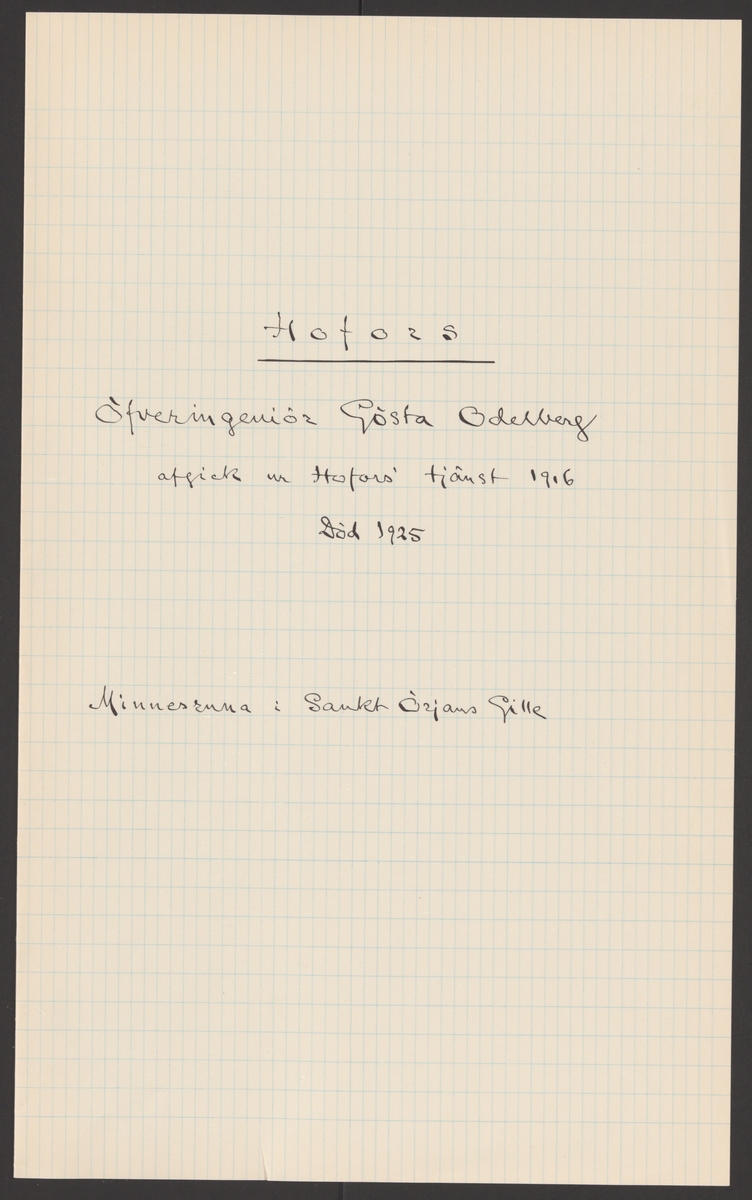 Hofors
Öfveringeniör Gösta Odelberg
afgick ur Hofors' tjänst 1916
Död 1925
Minnesruna i Sankt Örjans Gille